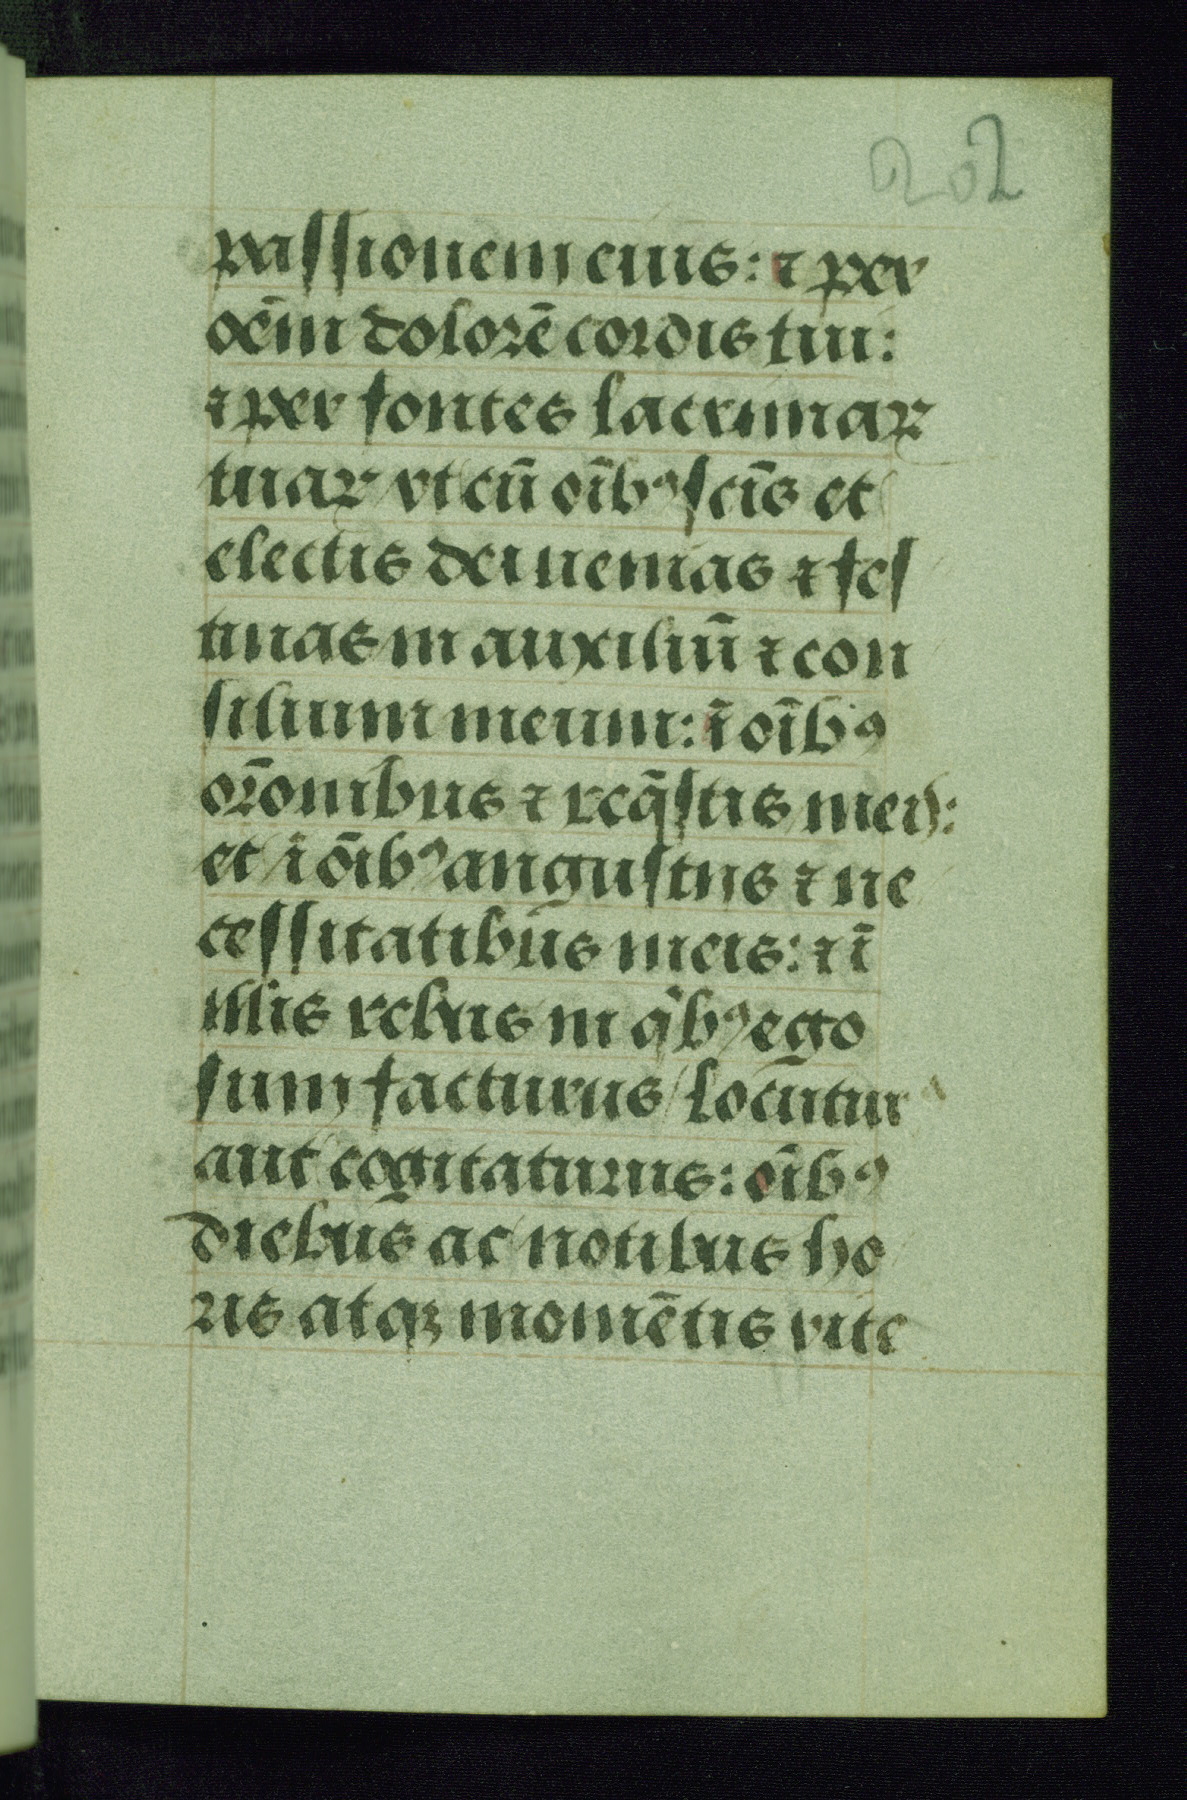 202
passionem eius: ⁊ per
oēm dolorē cordis tui:
⁊ per fontes lacrimaꝝ
tuaꝝ vt cū oībꝰ scīs et
electis dei uenias ⁊ fes
tinas in auxiliū ⁊ con
silium meum: ī oībꝰ
orōnibus ⁊ req̄stis meis:
et ī oībꝰ angustiis ⁊ ne
cessitatibus meis: ⁊ ī
illis rebus in qͥbꝰ ego
sum facturus locutur
aut cogitaturus: oībꝰ
diebus ac notibus ho
ris atqꝫ momētis vite